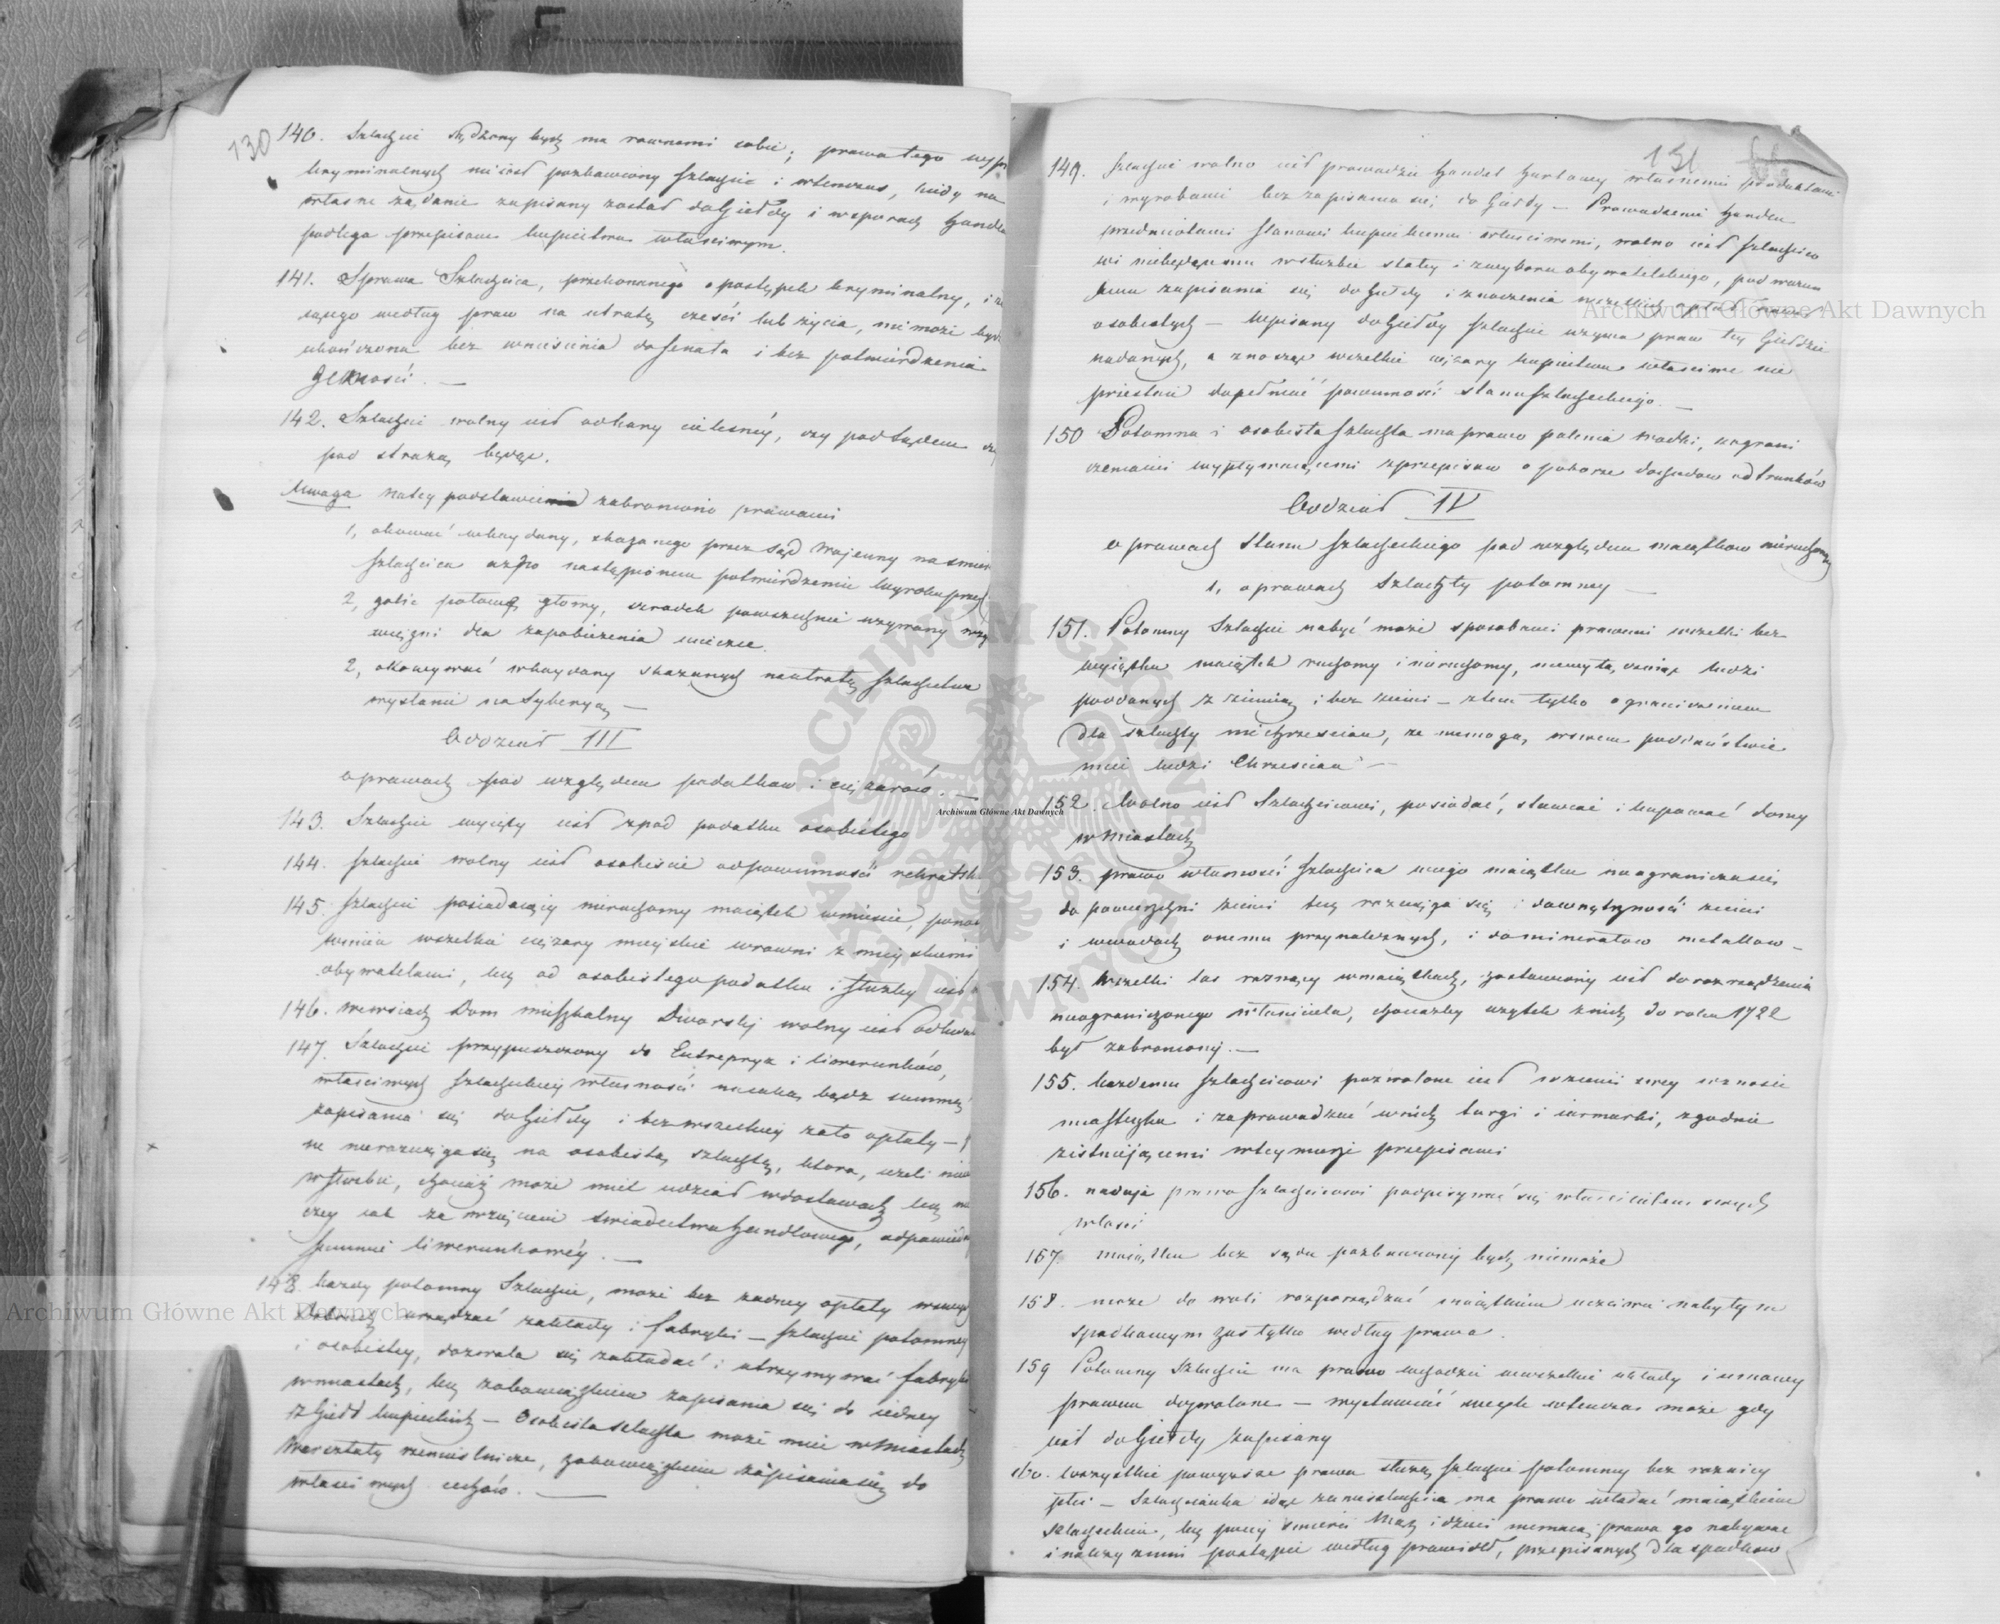 130
140. Szlachcic sądzony być ma rownemi sobie; prawa tego
kryminalnych nie iest pozbawiony szlachcic i wtenczas, kiedy na
własne żądanie zapisany został do Giełdy i w sporach Handlo
podlega przepisom kupiectwu właściwym.
141. Sprawa Szlachcica, przekonanego o postępek kryminalny, i
iącego według praw na utratę cześci lub życia, nie może bydź
ukończona bez wniesienia do Senatu i bez potwierdzenia
142. Szlachcic wolny iest od kary cielesnéy, czy pod Sądem czy
pod strażą będąc.
Uwaga na tey podstawie zabroniono prawami
1, okować w kaydany, skazanego przez Sąd Wojenny na śmierć
szlachcica aż po nastąpioném potwierdzeniu wyroku przez
2, golić połowę głowy, srodek powszechnie używany przy
więźni dla zapobieżenia ucieczce.
2, okowywać w kaydany skazanych na utratę szlachectwa
wysłanie na Syberyą —
Oddział III
o prawach pod względem podatkow i ciężarów. —
143. Szlachcic wyięty iest z pod podatku osobistego
144. Szlachcic wolny iest osobiscie od powinności rekrutsk
145. Szlachcic posiadaiący nieruchomy maiątek w miescie, ponosi
winien wszelkie ciężary mieyskie w rowni z mieyskiemi
obywatelami, lecz od osobistego podatku i służby iest
146. We wsiach Dom mieszkalny Dworski wolny iest od
147. Szlachcic przypuszczony do Entrepryz i liwerunków,
właściwych szlacheckiey własności na iaką bądź summę,
zapisania się do Giełdy i bez wszelkiey za to opłaty —
nie rozciąga się na osobistą szlachtę, ktora, ieżeli nie
w służbie, chociaż może mieć udział w dostawach lecz
czey iak za wzięciem świadectwa handlowego, odpowied
summie liwerunkowéy. —
148. każdy potomny Szlachcic, może bez żadney opłaty w swych
dobrach urządzać zakłady i fabryki — szlachcie potomney
i osobistey, dozwala się zakładać i utrzymywać fabryki
w miastach, lecz z obowiązkiem zapisania się do iedney
z Giełd kupieckich — Osobista szlachta może mieć w miastach
Warsztaty rzemieślnicze, z obowiązkiem zapisania się do
właściwych cechów. —
131
149. Szlachcie wolno iest prowadzić Handel Hurtowy własnemi produktami
i wyrobami bez zapisania się do Giełdy — Prowadzenie Handlu
przedmiotami stanowi kupieckiemu właściwemi, wolno iest szlachcico
wi niebędącemu w służbie stałey i z wyboru obywatelskiego, pod warun
kiem zapisania się do Giełdy i znoszenia wszelkich opłat
osobistych — Wpisany do Giełdy szlachcic używa praw tey Giełdzie
nadanych, a znosząc wszelkie ciężary kupiectwu właściwe nie
przestaie dopełniać powinności stanu szlacheckiego. —
150 Potomna i osobista szlachta ma prawo palenia wodki, z ograni
czeniami wypływaiącemi z przepisow o poborze dochodow od trunków
Oddział IV
o prawach stanu szlacheckiego pod względem maiątkow nieruchomych
1, o prawach Szlachty potomney —
151. Potomny Szlachcic nabyć może sposobami prawemi wszelki bez
wyiątku maiątek ruchomy i nieruchomy, niewyłączaiąc ludzi
poddanych z ziemią i bez ziemi — z tem tylko ograniczeniem
dla szlachty niechrześcian, że nie mogą w swem poddaństwie
mieć ludzi Chrześcian —
152. Wolno iest Szlachcicowi, posiadać, stawiać i kupować domy
w Miastach
153. prawo własności szlachcica w iego maiątku nie ogranicza się,
do powierzchni ziemi lecz rozciąga się i do wnętrzności ziemi
i w wodach onemu przynależnych, i do minerałow metallow —
154. Wszelki las rosnący w maiątkach, zostawiony iest do rozrządzenia
nieograniczonego właściciela, chociażby użytek z nich do roku 1722
był zabroniony. —
155. każdemu Szlachcicowi pozwolone iest w ziemi swey wznosić
miasteczka i zaprowadzać w nich targi i iarmarki, zgodnie
z istniejącemi w tey mierze przepisami
156. nadaje prawo Szlachcicowi podpisywać się właścicielem swych
włości
157. maiątku bez sądu pozbawiony bydź niemoże
158. może do woli rozporządzać maiątkiem uczciwie nabytym
spadkowym zaś tylko według prawa.
159 Potomny Szlachcic ma prawo wchodzić we wszelkie układy i umowy
prawem dozwolone — wystawiać wexle wtenczas może gdy
iest do Giełdy zapisany
160. Wszystkie powyższe prawa służą szlachcie potomney bez roznicy
płci — Szlachcianka idąc za nieszlachcica ma prawo władać maiątkiem
szlacheckim, lecz po iey smierci Mąż i dzieci niemaią prawa go nabywać
i należy z nim postąpić według prawideł, przepisanych dla spadkow
Archiwum Główne Akt Dawnych
Archiwum Główne Akt Dawnych
Archiwum Główne Akt Dawnych
ARCHIWUM GŁÓWNE AKT DAWNYCH